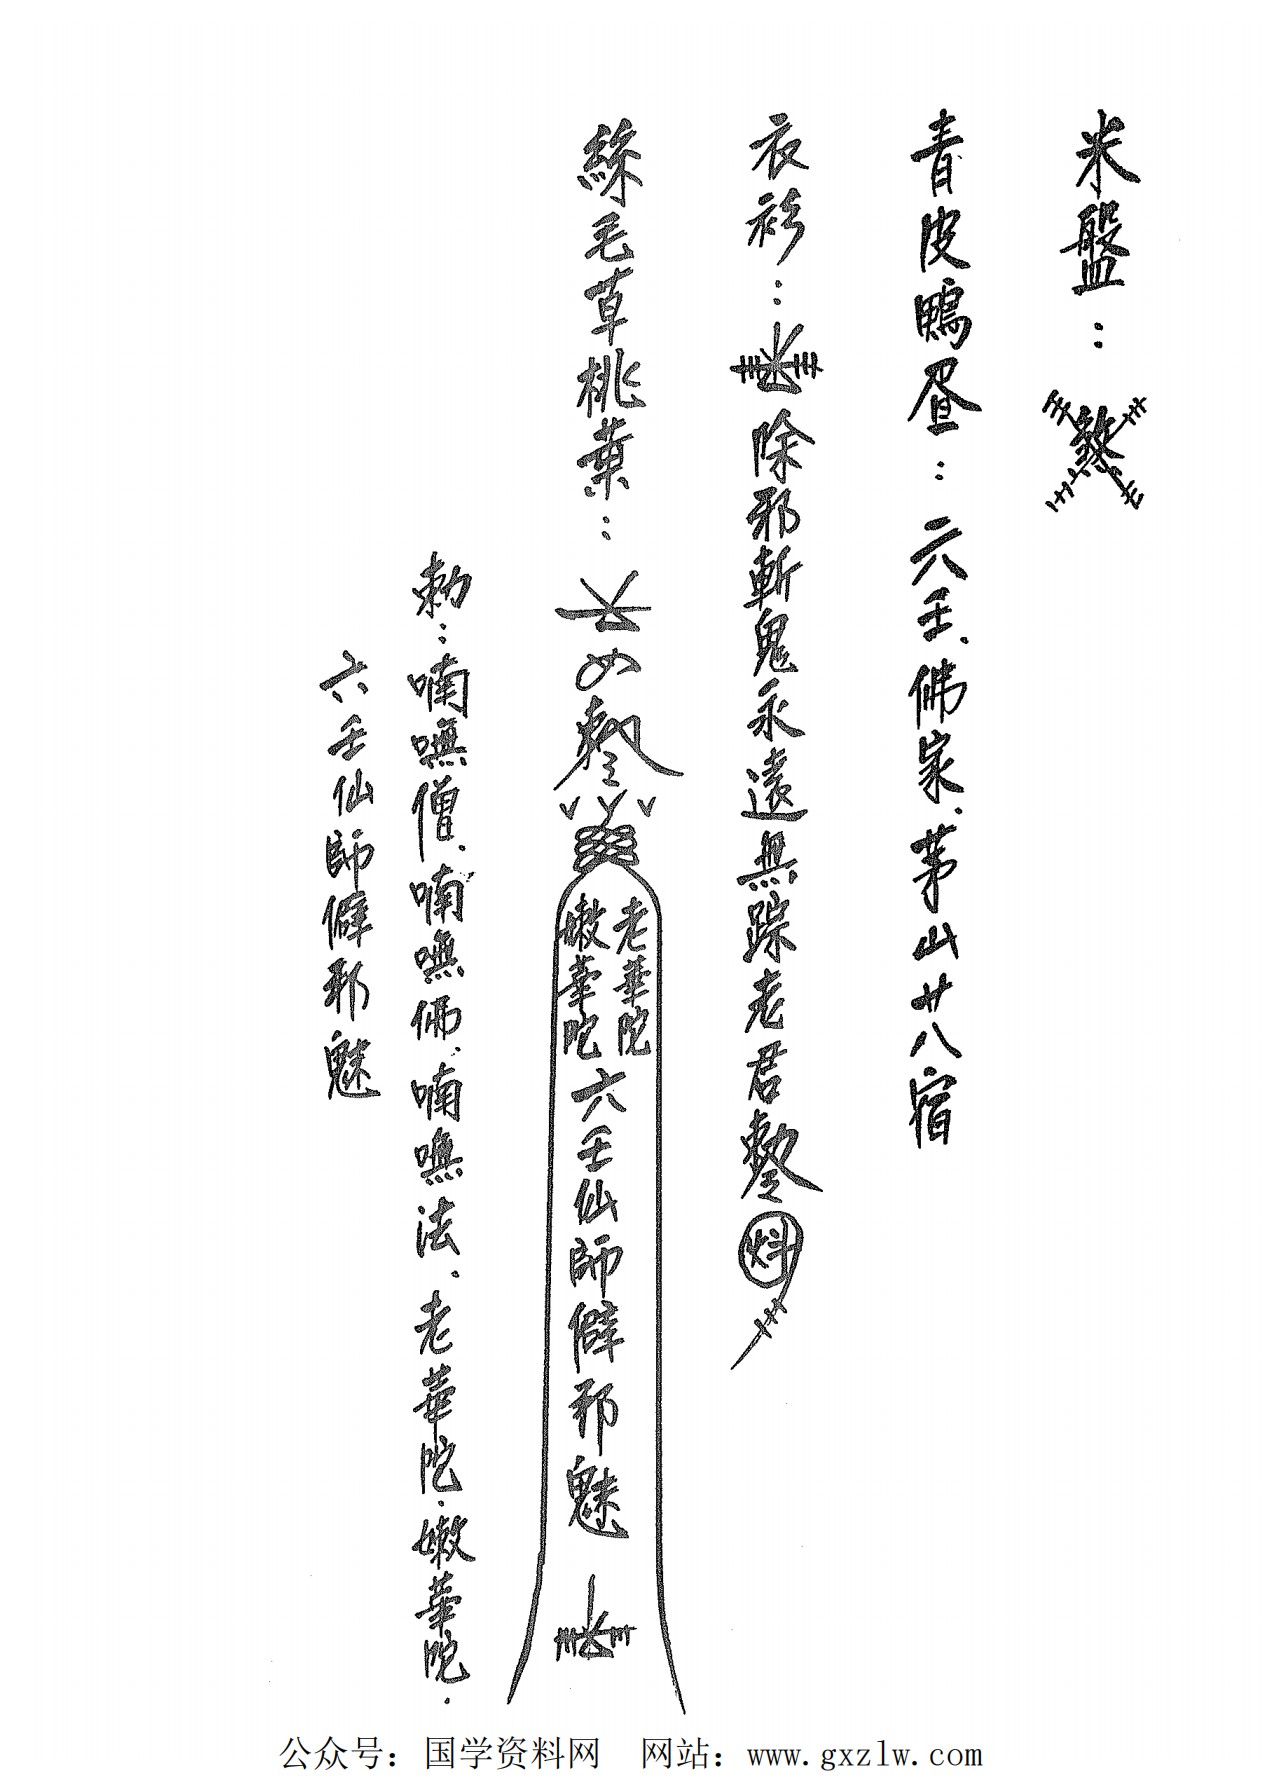 米盤：煞
青皮鴨蛋：六壬、佛家、茅山廿八宿
衣衫：除邪斬鬼永遠無踪老君
絲毛草桃葉：
老華陀
嫩華陀
六壬仙師僻邪魅
勅：喃嘸僧、喃嘸佛、喃嘸法、老華陀、嫩華陀、
六壬仙師僻邪魅
公众号：国学资料网 网站：www.gxzlw.com